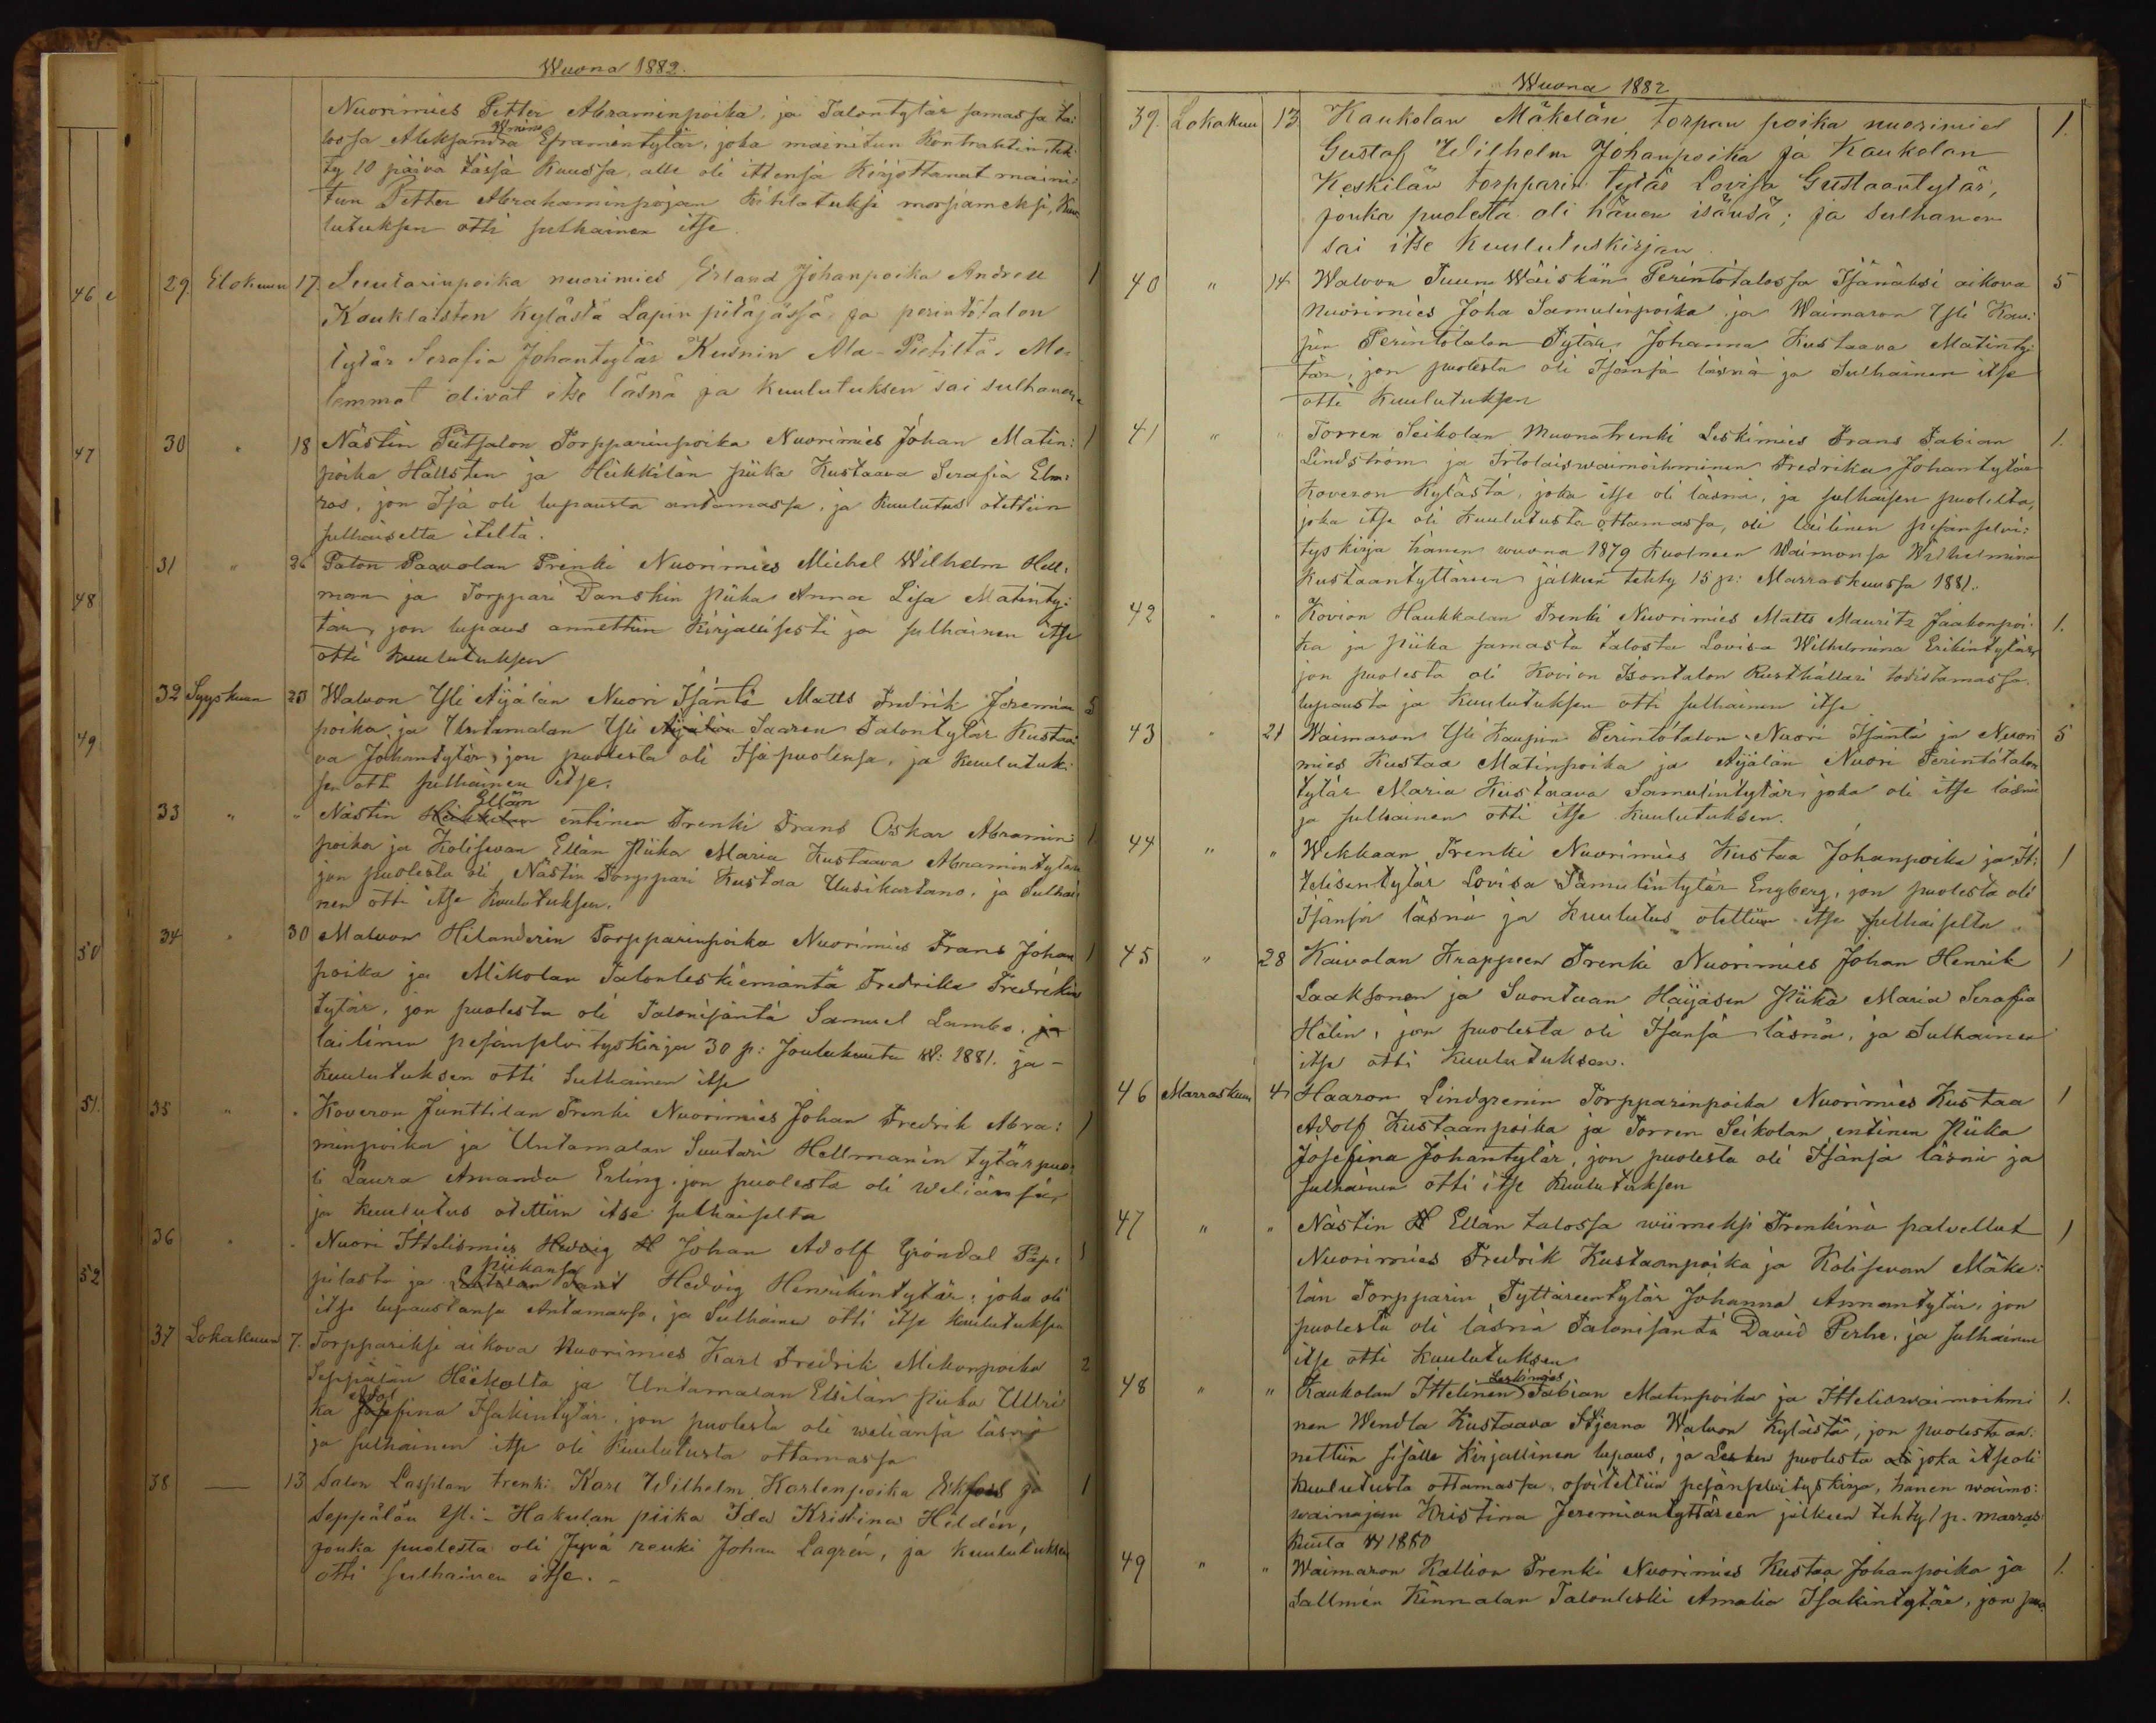 Wuona 1882.
Nuorimies Petter Abraminpoika, ja Talontytär samassa ta:
lossa Aleksandra Wraino Eframintytär, joka mainitun Kontrahtin teh:
ty 10 päivä tässä Kuussa, alle oli ittensä Kirjottanut maini:
tun Petter Abrahaminpojan kihlatuksi morsiameksi, Kuu
lutuksen otti sulhainen itse.
46
29. Elokuun 17. Suutarinpoika nuorimies Erland Johanpoika Andrell 1
Kauklaisten Kylästä Lapin pitäjässä ja perintötalon
tytär Serafia Johantytär Kusnin Ala-Pietiltä. Mo
lemmat olivat itse läsnä ja Kuulutuksen sai sulhanen
47
30 " 18 Nästin Pietsalon Torpparinpoika Nuorimies Johan Matin: 1
poika Hällsten ja Heikkilän piika Kustaava Serafia Elm:
ros, jon Isä oli lupausta antamassa, ja Kuulutus otettiin
sulhaiselta iteltä.
31 " 26 Palon Paavolan Trenki Nuorimies Michel Wilhelm Hell,
48
man ja Torppari Danskin piika Anna Lisa Matinty:
tär, jon lupaus annettiin Kirjallisesti ja sulhainen itse
otti kuulutuksen
32 Syyskuun 23 Walvon Yli Äijälän Nuori Isäntä Matts Fredrik Jeremian 5
49
poika, ja Untamalan Yli Äijälän Saaren Talontytär Kustaa:
va Johantytär, jon puolesta oli Isäpuolensa, ja Kuulutuk:
sen otti sulhainen itse.
33 " " Nästin Heikkilän Ellän entinen Trenki Frans Oskar Abramin: 1
poika ja Kolisevan Ellän Piika Maria Kustaava Abramintytär
jon puolesta oli Nästin Torppari Kustaa Uusikartano, ja Sulhai
nen otti itse Kuulutuksen.
34 " 30 Malvon Hilanderin Torpparinpoika Nuorimies Frans Johan 1
50
poika ja Mikolan Talonleskiemäntä Fredrika Fredrikin
tytär, jon puolesta oli Talonisäntä Samuel Lambo, ja
lailinen pesänselvityskirja 30 p: Joulukuuta W: 1881. ja -
Kuulutuksen otti Sulhainen itse
51.
35 " " Koveron Junttilan Trenki Nuorimies Johan Fredrik Abra: 1
minpoika ja Untamalan Suutari Hellmanin tytärpuo
li Laura Amanda Erling, jon puolesta oli weliänsä
ja Kuulutus otettiin itse sulhaiselta
36 " " Nuori Ittelismies Hedvig H Johan Adolf Gröndal Pap: 1
52
pilasta ja Piikansa Hedvig Henrikintytär, joka oli
itse lupaustansa Antamassa, ja Sulhainen otti itse Kuulutuksen
37 Lokakuun 7. Torppariksi aikova Nuorimies Karl Fredrik Mikonpoika 2
Seppälän Heikolta ja Untamalan Elsilän piika Ulri
ka Adol Josefina Isakintytär, jon puolesta oli weliänsä läsnä
ja sulhainen itse oli Kuulutusta ottamassa
38 — 13 Salon Lassilan trenki Karl Wilhelm Karlenpoika Ekfors ja 1
Seppälän Yli-Hakulan piika Ida Kristina Hildén,
jonka puolesta oli Jyvä renki Johan Lagrén, ja kuulutuksen
otti sulhainen itse. -
Wuona 1882
39. Lokakuun 13. Kaukolan Mäkelän torpan poika nuorimies 1.
Gustaf Wilhelm Johanpoika ja Kaukolan
Keskilän torpparin tytär Lovisa Gustaantytär,
jonka puolesta oli hänen isänsä; ja sulhanen
sai itse Kuulutuskirjan.
40 " 14 Walvon Tuuna Wäiskän Perintötalossa Isännäksi aikova 5
Nuorimies Joha Samulinpoika ja Waimaron Yli Kau:
pin Perintötalon Tytär, Johanna Kustaava Matinty:
tär, jon puolesta oli Isänsä läsnä ja Sulhainen itse
otti Kuulutuksen
41 " " Torren Seikolan Muonatrenki Leskimies Frans Fabian 1.
Lindström ja Irtolaiswaimoihminen Fredrika Johantytär
Koveron Kylästä, joka itse oli läsnä, ja sulhaisen puolesta,
joka itse oli Kuulutusta ottamassa, oli lailinen pesänselvi:
tyskirja hänen wuona 1879 Kuolneen Waimonsa Wilhelmina
Kustaantyttären jälkeen tehty 15 p: Marraskuussa 1881.
42 " " Kovion Haukkalan Trenki Nuorimies Matts Mauritz Jaakonpoi: 1.
ka ja Piika samasta talosta Lovisa Wilhelmina Erikintytär
jon puolesta oli Kovion Isontalon Rusthållari todistamassa
lupausta ja Kuulutuksen otti sulhainen itse
43 " 21 Waimaron Yli Kaupin Perintötalon Nuori Isäntä ja Nuori 5
mies Kustaa Matinpoika ja Äijälän Nuori Perintötalon
tytär Maria Kustaava Samulintytär, joka oli itse läsnä
ja sulhainen otti itse Kuulutuksen.
44 " " Wekkaan Trenki Nuorimies Kustaa Johanpoika ja It: 1
telisentytär Lovisa Samulintytär Engberg, jon puolesta oli
Isänsä läsnä ja Kuulutus otettiin itse sulhaiselta.
45 " 28 Kaivolan Krappeen Trenki Nuorimies Johan Henrik 1
Laaksonen ja Suontaan Häijäsen Piika Maria Serafia
Helin, jon puolesta oli Isänsä läsnä, ja Sulhainen
itse otti Kuulutuksen.
46 Marraskuun 4 Haaron Lindgrenin Torpparinpoika Nuorimies Kustaa 1
Adolf Kustaanpoika ja Torren Seikolan entinen Piika
Josefina Johantytär, jon puolesta oli Isänsä läsnä ja
sulhainen otti itse Kuulutuksen
47 " " Nästin H Ellän talossa wiimeksi Trenkinä palvellut 1
Nuorimies Fredrik Kustaanpoika ja Kolisevan Mäke:
län Torpparin Tyttäreentytär Johanna Annantytär, jon
puolesta oli läsnä Talonisäntä David Perhe, ja sulhainen
itse otti Kuulutuksen
48 " " Kaukolan Ittelinen Leskimies Fabian Matinpoika ja Itteliswaimoihmi 1.
nen Wendla Kustaava Stjerna Walvon Kylästä, jon puolesta an:
nettiin sisälle Kirjallinen lupaus, ja Lesken puolesta oli joka itse oli
Kuulutusta ottamassa, osoitettiin pesänselvityskirja, hänen waimo:
wainajan Kristina Jeremiantyttären jälkeen tehty 1 p. marras
kuuta W 1880
49 " " Waimaron Kallion Trenki Nuorimies Kustaa Johanpoika ja 1.
Sallmén Kinnalan Talonleski Amalia Isakintytär, jon puo